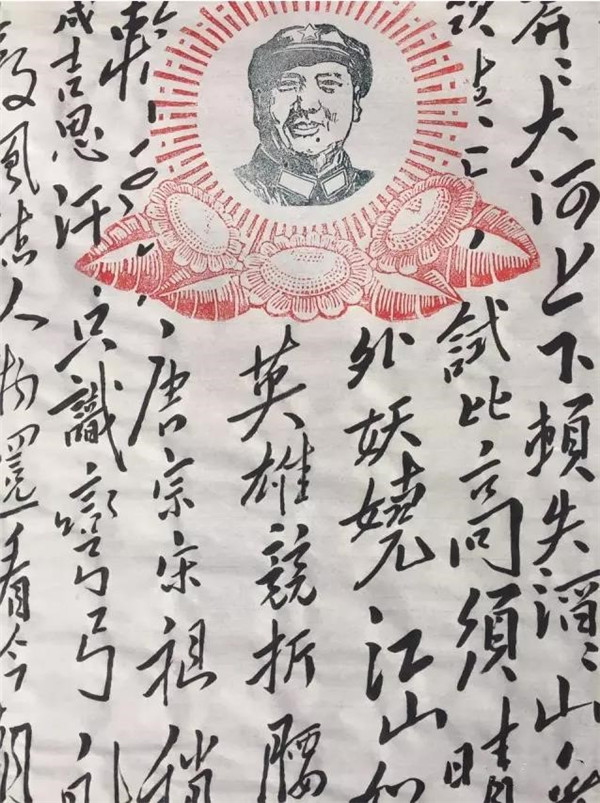 〻大河上下頓失滔〻山
試比高須晴
外妖嬈江山如
英雄競折腰
唐宗宋祖稍
成吉思汗只識彎弓
數風流人物還看今朝